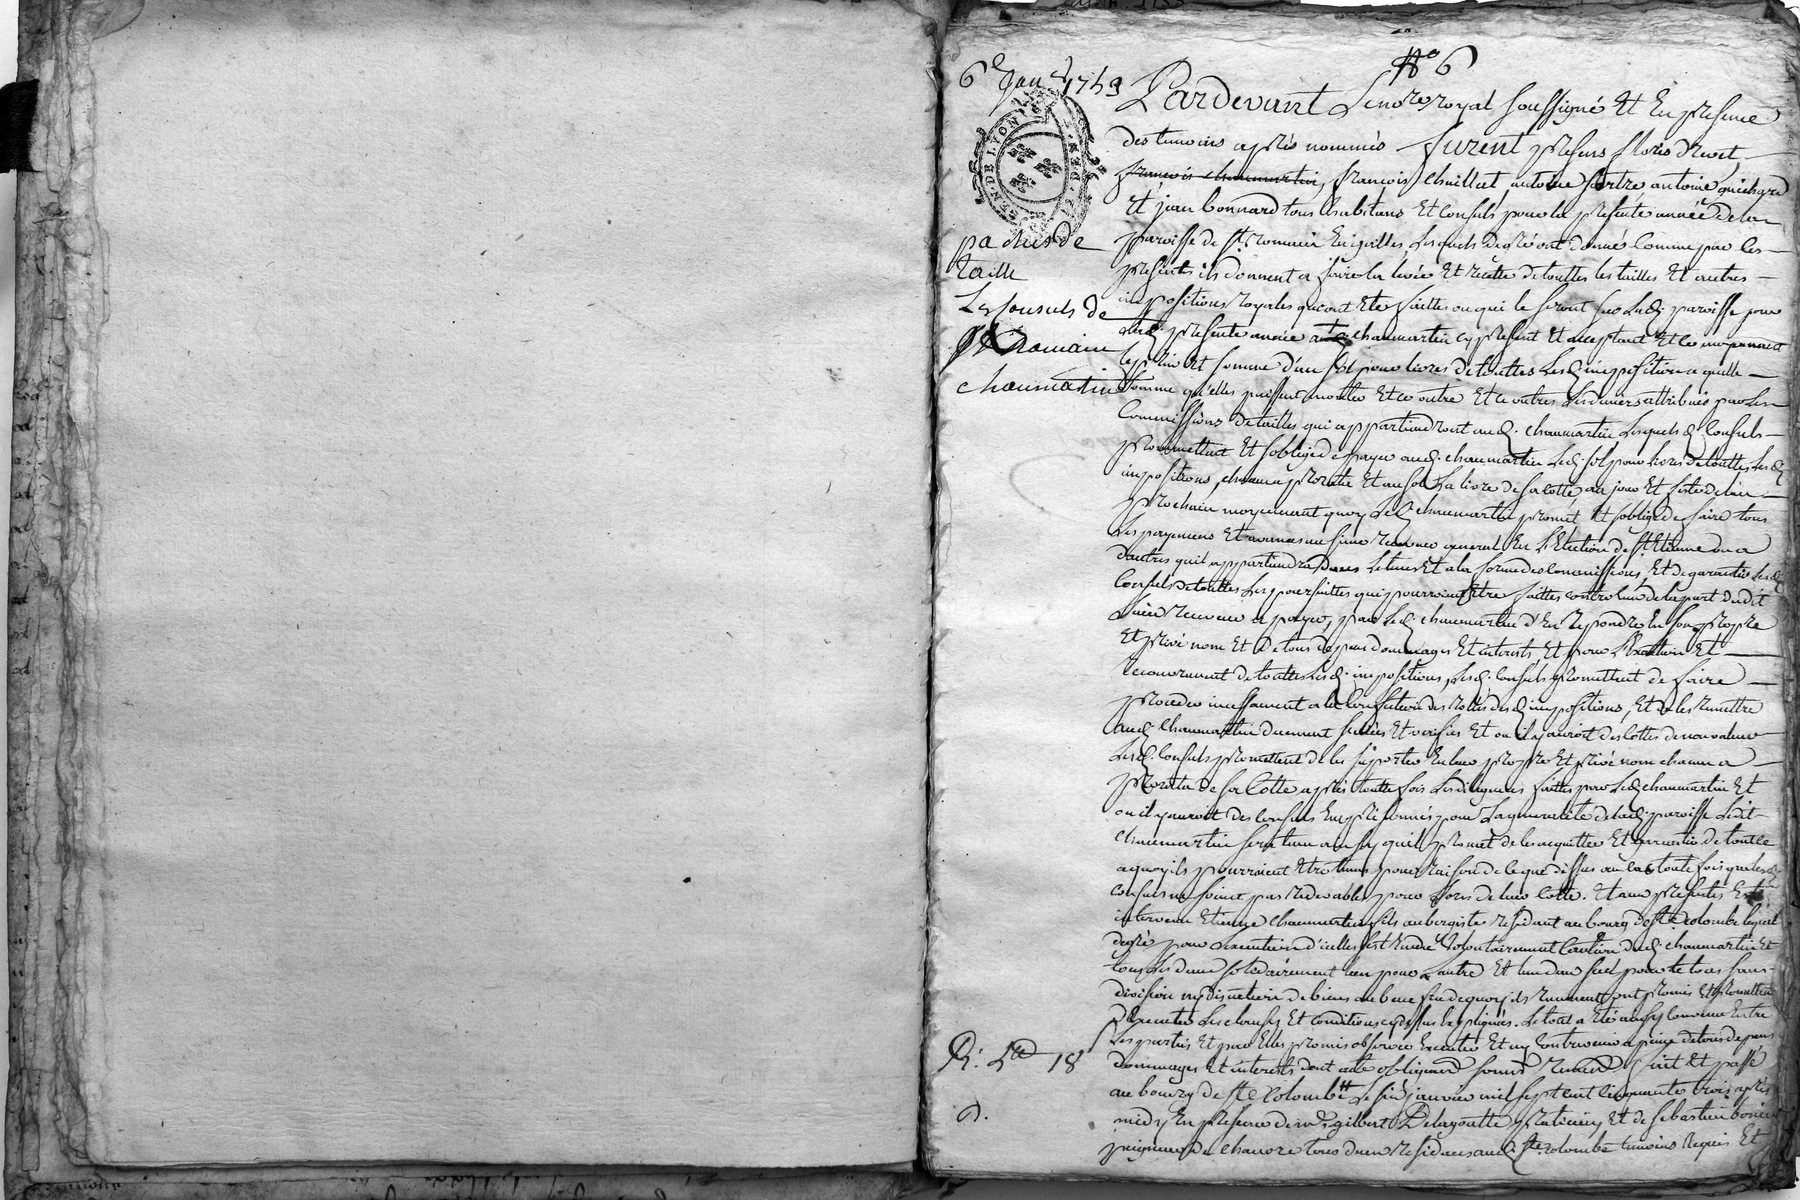 N° 6
6e Janv. 1753
GEN. DE LYON
Pardevant Le no.re royal soussigné Et En presence
des temoins aprés nommés furent presens
françois chaumartin, françois Chuillat, antoine antoine guichard
Et jean bonnard tous habitans Et Consuls pour la presente année de la
paroisse de St. romain Lesquels de gré ont donné Comme par les
presentes ils donnent a faire la levée Et recette de touttes les tailles Et autres
impositions royales qui ont Eté faittes ou qui le seront sur lad. paroisse pour
lad. presente année chaumartin cy present Et acceptant Et ce moyenant
le prix et somme d'un sol pour livres de touttes Lesd. impositions a quelle
somme qu'elles puissent monter Et en outre Les deniers attribués par les
Commissions de tailles qui appartiendront aud. chaumartin Lesquels d. Consuls
promettent Et s'obligent de payer aud. chaumartin Led. sol pour livres de touttes Lesd.
impositions, chacun prorata Et au sol La livre de sa cotte au jour Et feste
prochain moyennant quoy Led. chaumartin promet Et s'oblige de faire tous
Les payements Et general En L'Election de St. Etienne ou a
d'autres qu'il appartiendra dans Le tems Et a la forme des Commissions, Et de garantir Lesd.
Consuls de touttes Les poursuittes qui pourroient Etre faittes contre Eux de la part dudit
sieur receveur a payer, par Led. chaumartin d'En repondre En son propre
Et privé nom Et de tous depens dommages Et interests, Et pour L'Exaction Et
recouvrement de touttes Lesd. impositions, Lesd. Consuls promettent de faire
proceder incessament a la Confection des rolles desd. impositions, Et de les remettre
aud. Chaumartin duement Et verifiés Et ou il y auroit des Cottes de non valeur
Lesd. Consuls promettent de les suporter En leur propre Et privé nom chacun a
prorata de sa Cotte aprés toutte fois Les diligences faittes par Led. chaumartin Et
ou il y auroit des Consuls Emprisonnés pour La generalité de lad. paroisse Ledit
chaumartin sera tenu ainsy qu'il promet de les acquitter Et garantir de toutte
a quoy ils pourroient Etre tenus pour raison de ce que dessus au cas toute fois que lesd.
consuls ne soient pas redevables pour Lors de leur Cotte. Et aux presentes Est
intervenu Etienne Chaumartin fils aubergiste residant au bourg de Ste. Colombe lequel
de gré pour L'execution d'icelles s'est rendu Volontairement Caution dud. chaumartin Et
tous Les deux solidairement l'un pour L'autre Et l'un d'eux seul pour le tous sans
division ny discution de biens au benefice de quoy ils renoncent, ont promis Et promettent
d'Executer Les clauses Et conditions cy dessus Expliquées. Le tout a Eté ainsy Convenu Entre
Les parties Et par Elles promis observer Executer Et n'y Contrevenir a peine de tous depens
dommages Et interests dont acte obligeant soumet renonce fait Et passé
au bourg de Ste. Colombe Le six janvier mil sept cent cinquante trois aprés
midy En presence de m.re gilbert Delagoutte praticien, Et de Sebastien
peigneur de chanvre tous deux residans aud. Ste. Colombe temoins requis Et
pactes de
taille
Les Consuls de
St Romain
chaumartin
R. 18